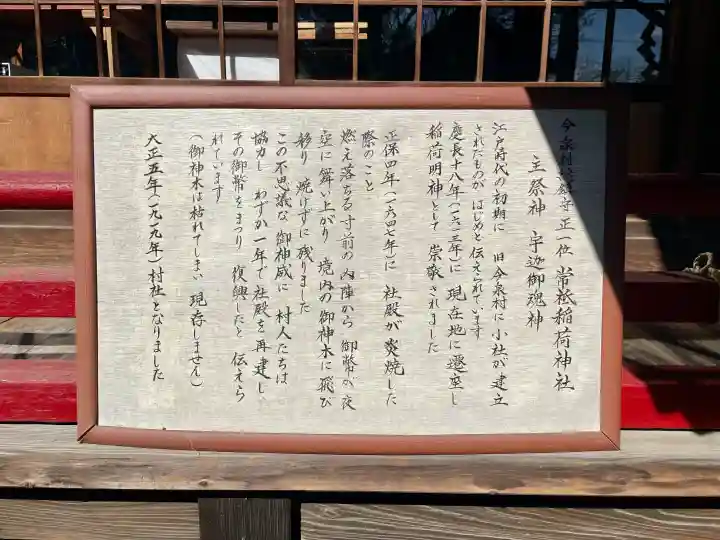 今泉村総鎮守 正一位 常祗稲荷神社
主祭神 宇迦御魂神
江戸時代の初期に 旧今泉村に小社が建立
されたものが はじめと伝えられています
慶長十八年(一六一三年)に 現在地に遷座し
稲荷明神として 崇敬されました
正保四年(一六四七年)に 社殿が炎焼した
際のこと
燃え落ちる寸前の内陣から 御幣が夜
空に舞い上がり 境内の御神木に飛び
移り 焼けずに残りました
この不思議な御神威に 村人たちは
協力し わずか一年で社殿を再建し
その御幣をまつり 復興したと 伝えら
れています
(御神木は枯れてしまい 現存しません)
大正五年(一九一九年)村社となりました